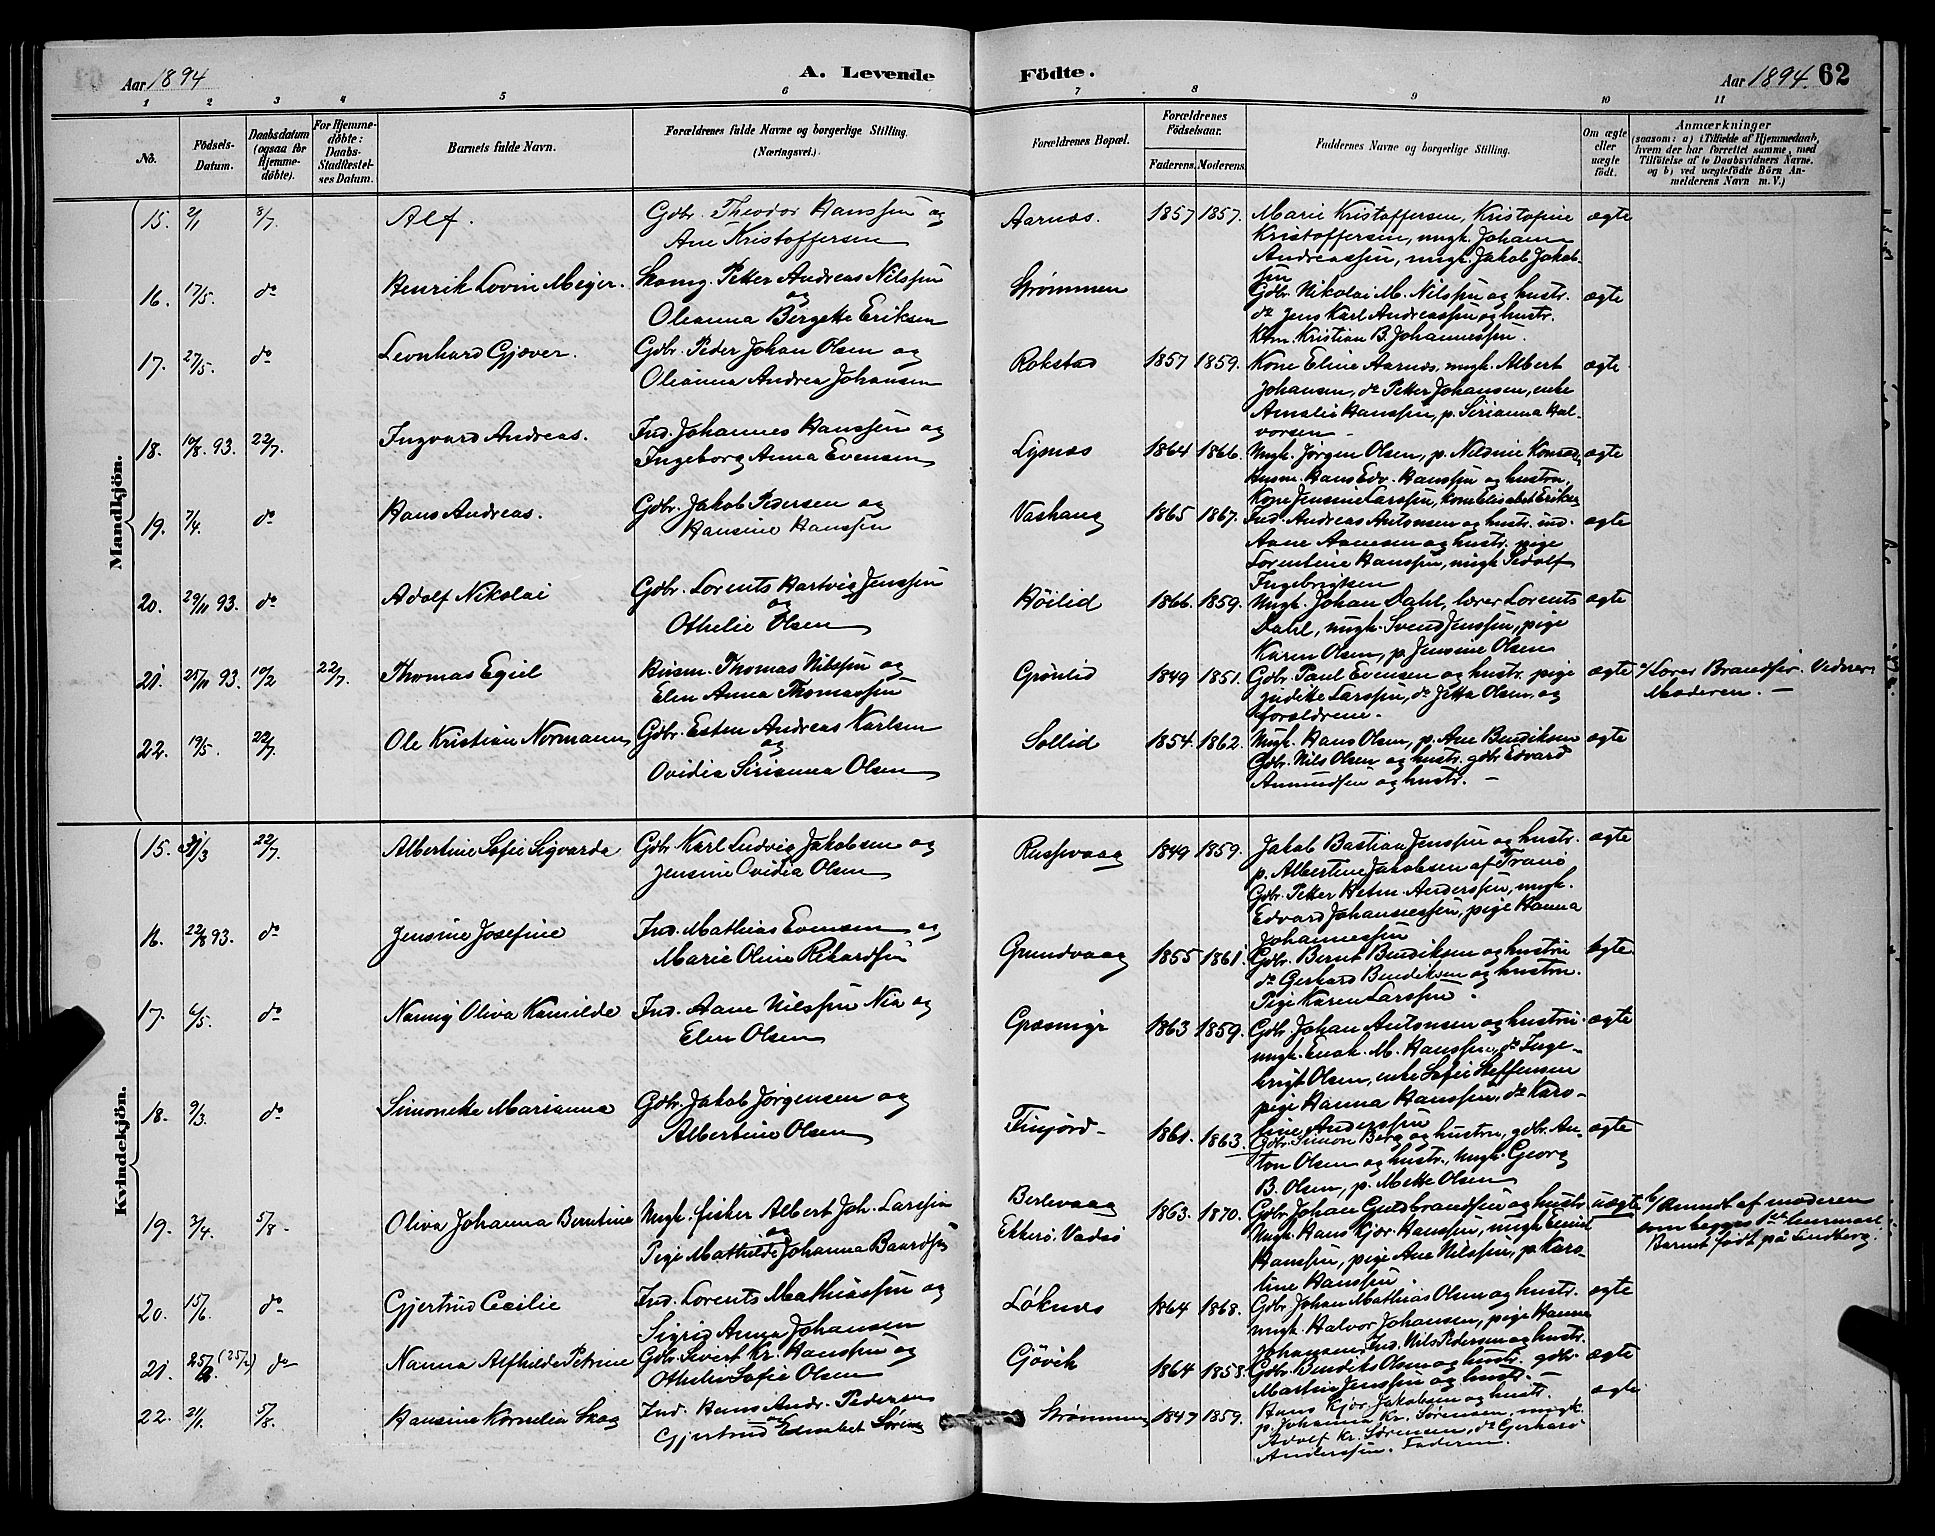 Aar 1894
A. Levende
Födte.
Aar 1894. 62
1 2 3 4 5 6 7 8 9 10 11
No.
Födsels-Datum.
Daabsdatum (ogsaa for Hjemme-döbte).
For Hjemme-döbte: Daabs-Stadfæstel-ses Datum.
Barnets fulde Navn.
Forældrenes fulde Navne og borgerlige Stilling. (Næringsvei.)
Forældrenes Bopæl.
Forældrenes Födselsaar.
Faderens. Moderens.
Faddernes Navne og borgerlige Stilling.
Om ægte eller uægte födt.
Anmærkninger
(saasom: a) i Tilfælde af Hjemmedaab, hvem der har forrettet samme, med Tilföielse af to Daabsvidners Navne. og b) ved uægtefödte Börn An-melderens Navn m. V.)
Mandkjön.
15. 2/1 8/7. Alf. Gdbr. Theodor Hanssen og
Ane Kristoffersen
Aarnæs. 1857 1857. Marie Kristoffersen, Kristofine
Kristoffersen, ungk. Johann
Andreassen, ungk. Jakob Jakob-
sen
ægte
16. 17/5. do Henrik Lovin Meyer. Skomg. Petter Andreas Nilssen
og
Olianna Bergette Eriksen
Strømmen
Gdbr. Nikolai M. Nilssen og hustr.
do Jens Karl Andreassen og hustr.
Kbm. Kristian B. Johannessen.
ægte
17. 27/5. do Leonhard Gjæver. Gdbr. Peder Johan Olsen og
Olianna Andrea Johansen
Rokstad 1857 1859. Kone Eline Aarnæs, ungk. Albert
Johansen, do Petter Johansen, enke
Amalie Hanssen, p. Sirianna Hal-
vorsen
ægte
18. 10/8. 93. 22/7. Ingvard Andreas. Ind. Johannes Hanssen og
Ingeborg Anna Evensen
Lysnæs 1864 1866. Ungk. Jørgen Olsen, p. Nilsine
Husm. Hans Edv. Hanssen og hustru,
Kone Jensine Larssen, kone Elisabet Eriksen
ægte
19. 7/4. do Hans Andreas. Gdbr. Jakob Pedersen og
Hansine Hanssen
Vashaug 1865 1867. Ind. Andreas Antonsen og hustr. ind.
Aane Aanesen og hustr. pige
Lorentine Hanssen, ungk. Pedolf
Ingebrigtsen
ægte
20. 29/11 93. do Adolf Nikolai Gdbr. Lorents Hartvig Jenssen
og
Othelie Olsen
Høilid 1866. 1859. Ungk. Johan Dahl, lærer Lorents
Dahl, ungk. Svend Jenssen, pige
Karen Olsen, p. Jensine Olsen
ægte
21. 25/11 93. 10/2 22/7. Thomas Egiel Husm. Thomas Nilssen og
Elen Anna Thomassen
Grønlid 1849 1851. Gdbr. Paul Evensen og hustr. pige
Judike Larssen, do Jetta Olsen, og
forældrene.
ægte
a/ Lærer Brandsfir. Vidner:
Moderen. —
22. 19/5. 22/7. Ole Kristian Normann Gdbr. Esten Andreas Karlsen
og
Ovidia Sirianna Olsen
Sollid 1854. 1862. Ungk. Hans Olsen, p. Ane Bendiksen
Gdbr. Nils Olsen og hustr. gdbr. Edvard
Amundsen og hustr. —
ægte
Kvindekjön.
15. 31/3 22/7. Albertine Sofie Sigvarda Gdbr. Karl Ludvig Jakobsen og
Jensine Ovidia Olsen
Russevaag 1849 1859. Jakob Bastian Jenssen og hustr.
p. Albertine Jakobsen af Tranö
Gdbr. Petter Hetm. Anderssen, ungk.
Edvard Johannessen, pige Hanna
Johannessen
ægte
16. 22/8 93. do Jensine Josefine Ind. Mathias Evensen og
Marie Oline Rikardsen
Grundvaag 1855 1861. Gdbr. Bernt Bendiksen og hustru
do Gerhard Bendiksen og hustru.
Pige Karen Larssen.
ægte
17. 6/5. do Nanny Oliva Kamilde Ind. Aane Nilssen Nia og
Elen Olsen
Græsmyr 1863 1859. Gdbr. Johan Antonsen og hustru.
ungk. Enok. M. Hanssen, do Inge-
brigt Olsen, enke Sofie Steffensen
pige Hanna Hanssen, do Karo-
line Anderssen
ægte
18. 9/3. do Simonette Marianna Gdbr. Jakob Jørgensen og
Albertine Olsen
Finfjord. 1861. 1863. Gdbr. Simon Berg og hustru, gdbr. An-
ton Olsen og hustr., ungk. Georg
B. Olsen, p. Mette Olsen
ægte
19. 3/4. 5/8. Oliva Johanna Berntine Ungk. fisker Albert Joh. Larssen
og
Pige Mathilde Johanna Baardsen
Berlevaag
Ekkerö, Vadsö
1863. 1870. Gdbr. Johan Guldbrandsen og hustr.
Ungk. Hans Kjör Hanssen, ungk. Emil
Hanssen, pige Ane Nilssen, p. Karo-
line Hanssen
uægte
b/ Anmdt af moderen
som begges 1ste
Barnet født på Lindberg.
20. 15/6. do Gjertrud Cecilie Ind. Lorents Mathiassen og
Sigrid Anna Johansen
Løknes 1864 1868. Gdbr. Johan Mathias Olsen og hustr.
ungk. Halvor Johansen, pige Hanna
Johansen, Ind. Nils Pedersen og hustr.
ægte
21. (25/2) do Nanna Alfhilde Petrine Gdbr. Sivert Kr. Hanssen og
Othelie Sofie Olsen
Gjövik 1864 1858. Gdbr. Bendiks Olsen og hustr. gdbr.
Martin Jenssen og hustr. —
ægte
22. 21/1. 5/8. Hansine Kornelia Skog Ind. Hans Andr. Pedersen
og
Gjertrud Elisabet Sörens
Strømmen 1847 1859. Hans Kjør Jakobsen og hustr.
p. Johanna Kr. Sørensen, ungk.
Adolf Kr. Sørensen, do Gerhard
Anderssen. Faderen.
ægte